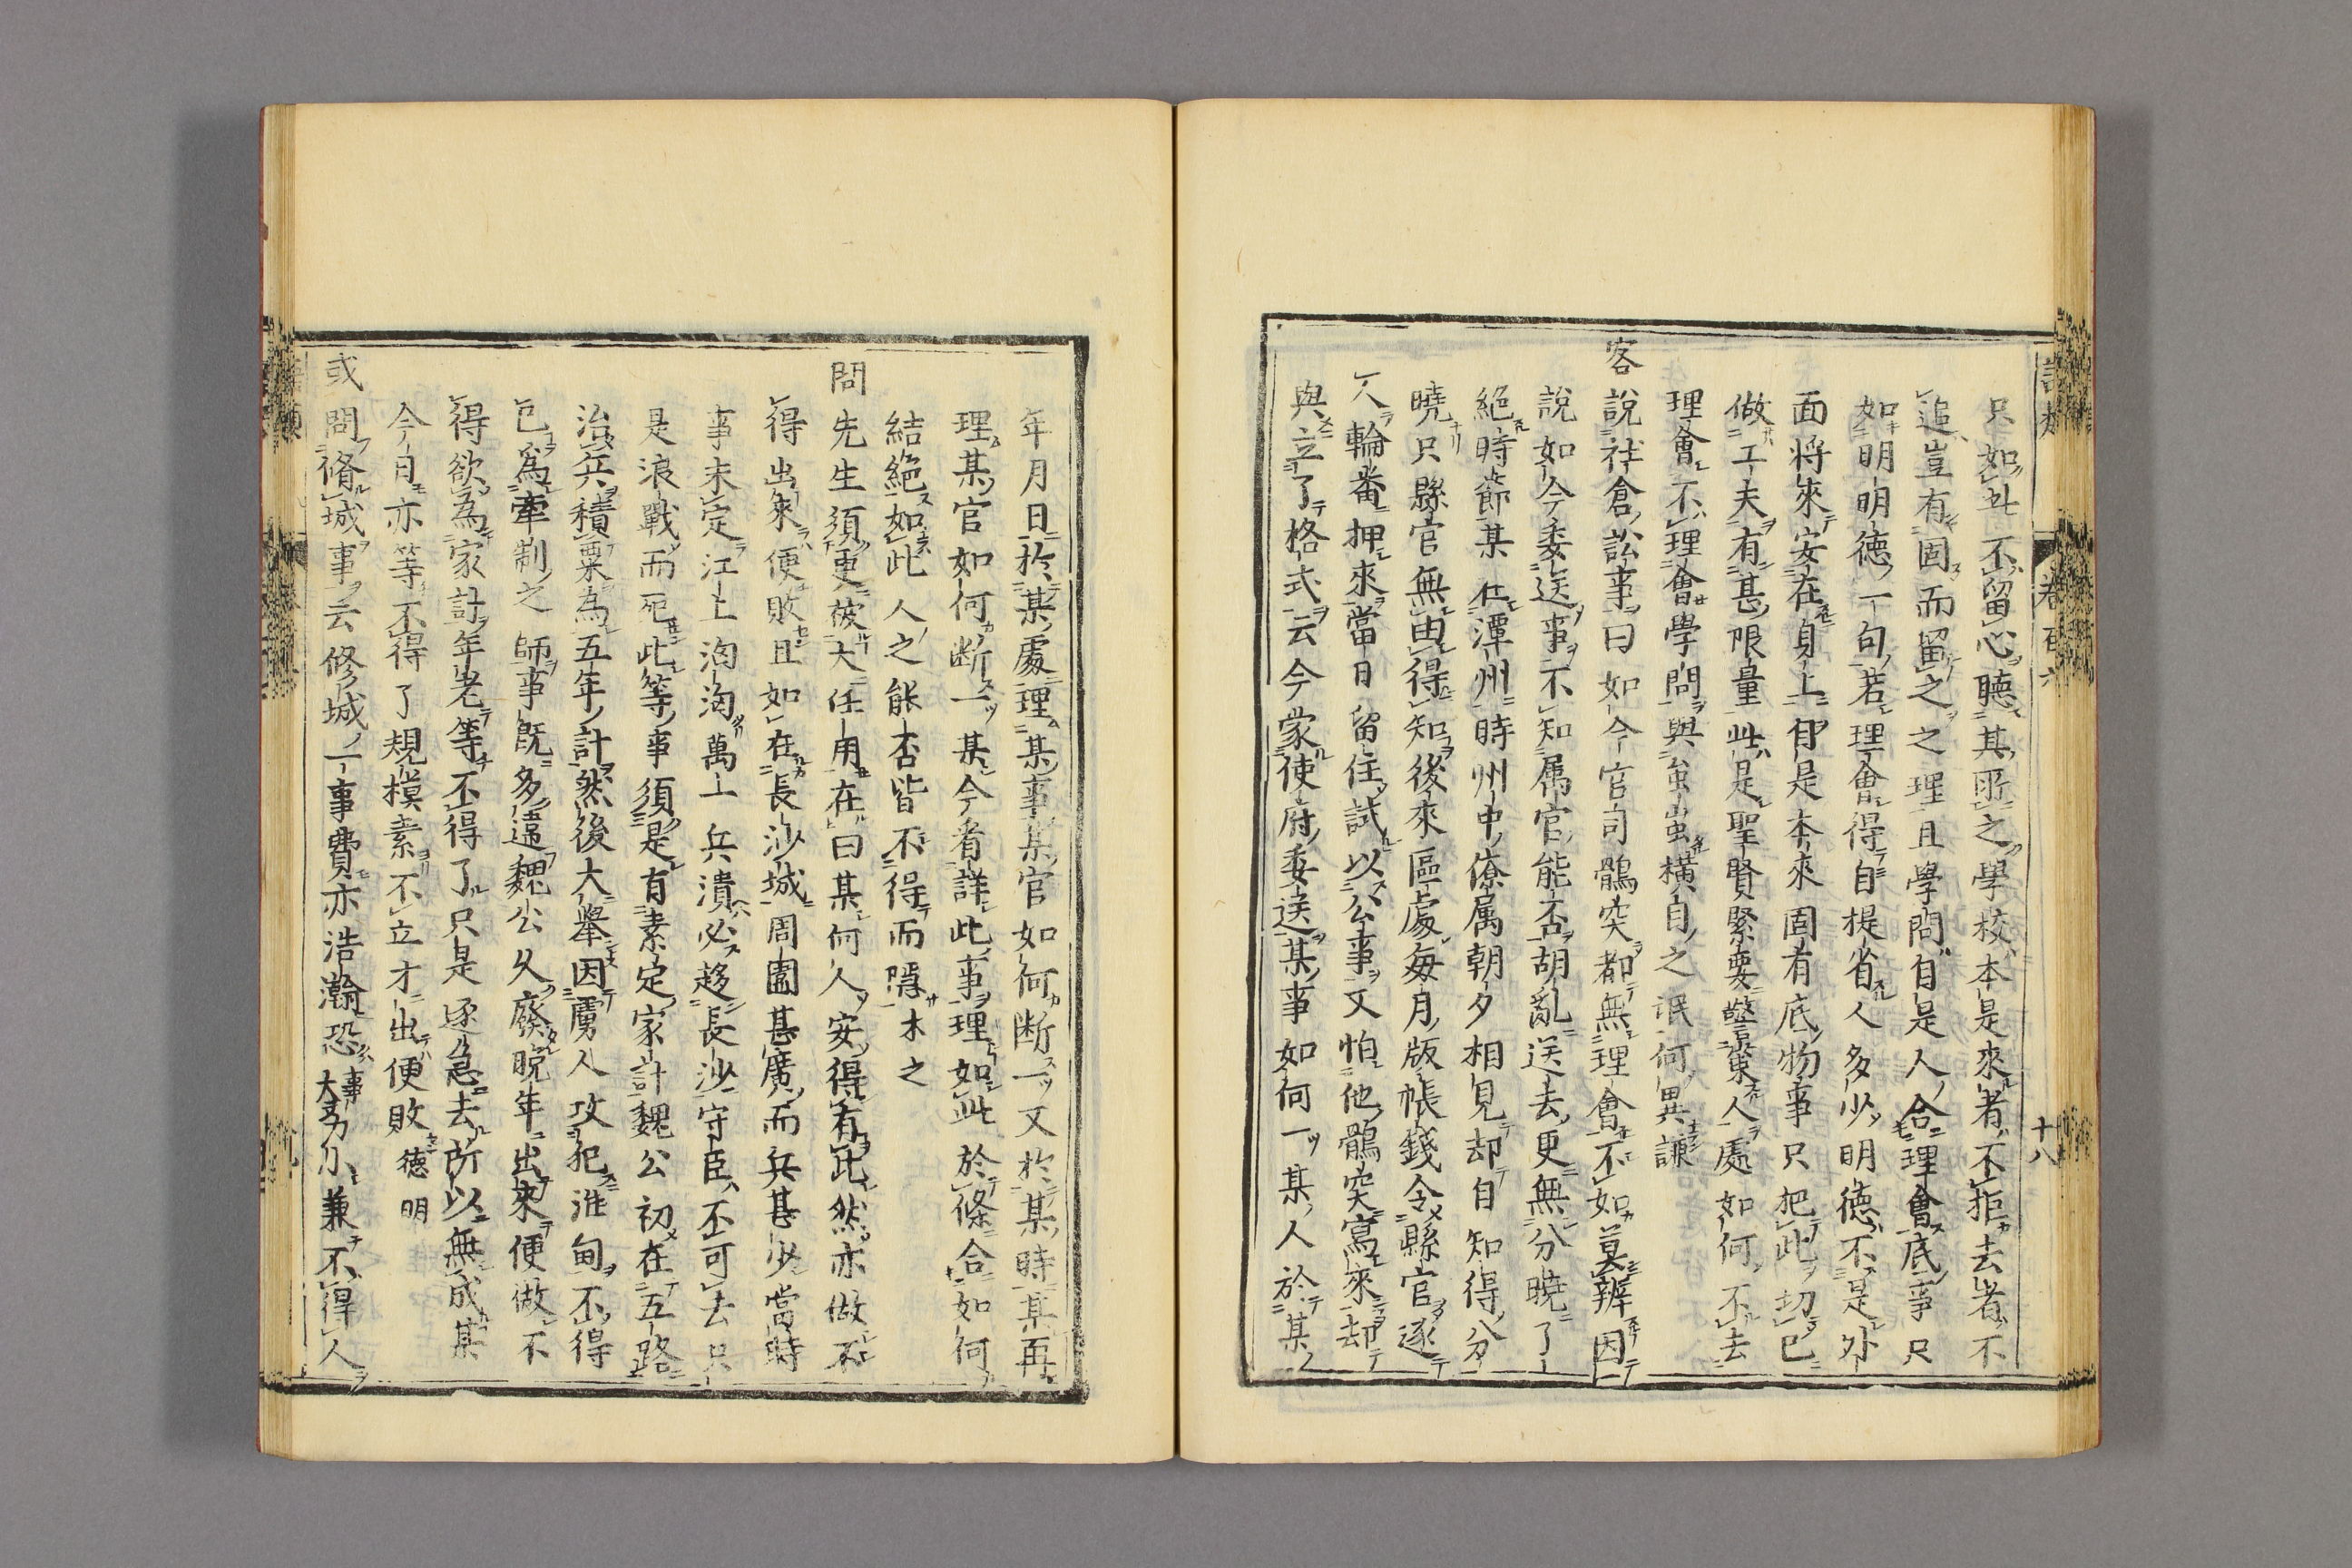 語類 卷百六 十八
只如此不留心聽其所之學校本是來者不拒去者不
追豈有固而留之之理且學問自是人合理會底事只
如明明德一句若理會得自提省人多少明德不是外
面將來安在身上自是本來固有底物事只把此切已
做工夫有甚限量此是聖賢緊要警策人處如何不去
理會不理會學問與蚩蚩橫目之氓何異謙
客說社倉訟事曰如今官司鶻突都無理會不如莫辨因
說如今委送事不知属官能否胡亂送去更無分曉了
絕時節某在潭州時州中僚属朝夕相見却自知得分
曉只縣官無由得知後來區處每月版帳錢令縣官逐
人輪番押來當日留住試以公事又怕他鶻突寫來却
與立了格式云今蒙使府委送某事如何一某人於某
年月日於某處理某事某官如何断一又於某時某再
理某官如何断一某今看詳此事理如此於條合如何
結絕如此人之能否皆不得而隱木之
問先生須更被大任用在曰某何人安得有此然亦做不
得出來便敗且如在長沙城周圍甚廣而兵甚少當時
事未定江上洶洶萬一兵潰必趍長沙守臣不可去只
是浪戰而死此等事須是有素定家計魏公初在五路
治兵積粟為五年計然後大舉因虜人攻犯淮甸不得
已爲牽制之師事既多違魏公久廢晚年出來便做不
得欲為家計年老等不得了只是逐急去所以無成某
今日亦等不得了規模素不立才出便敗德明
或問脩城事云修城一事費亦浩瀚恐事大力小兼不得人